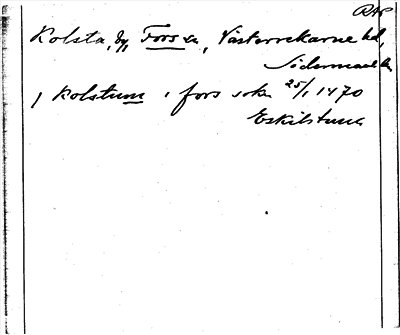 RAP
Kolsta, by, Fors sn, Västerrekarne hd,
Södermanl. l.
j kolstum i fors sokn 25/1 1470
Eskilstuna